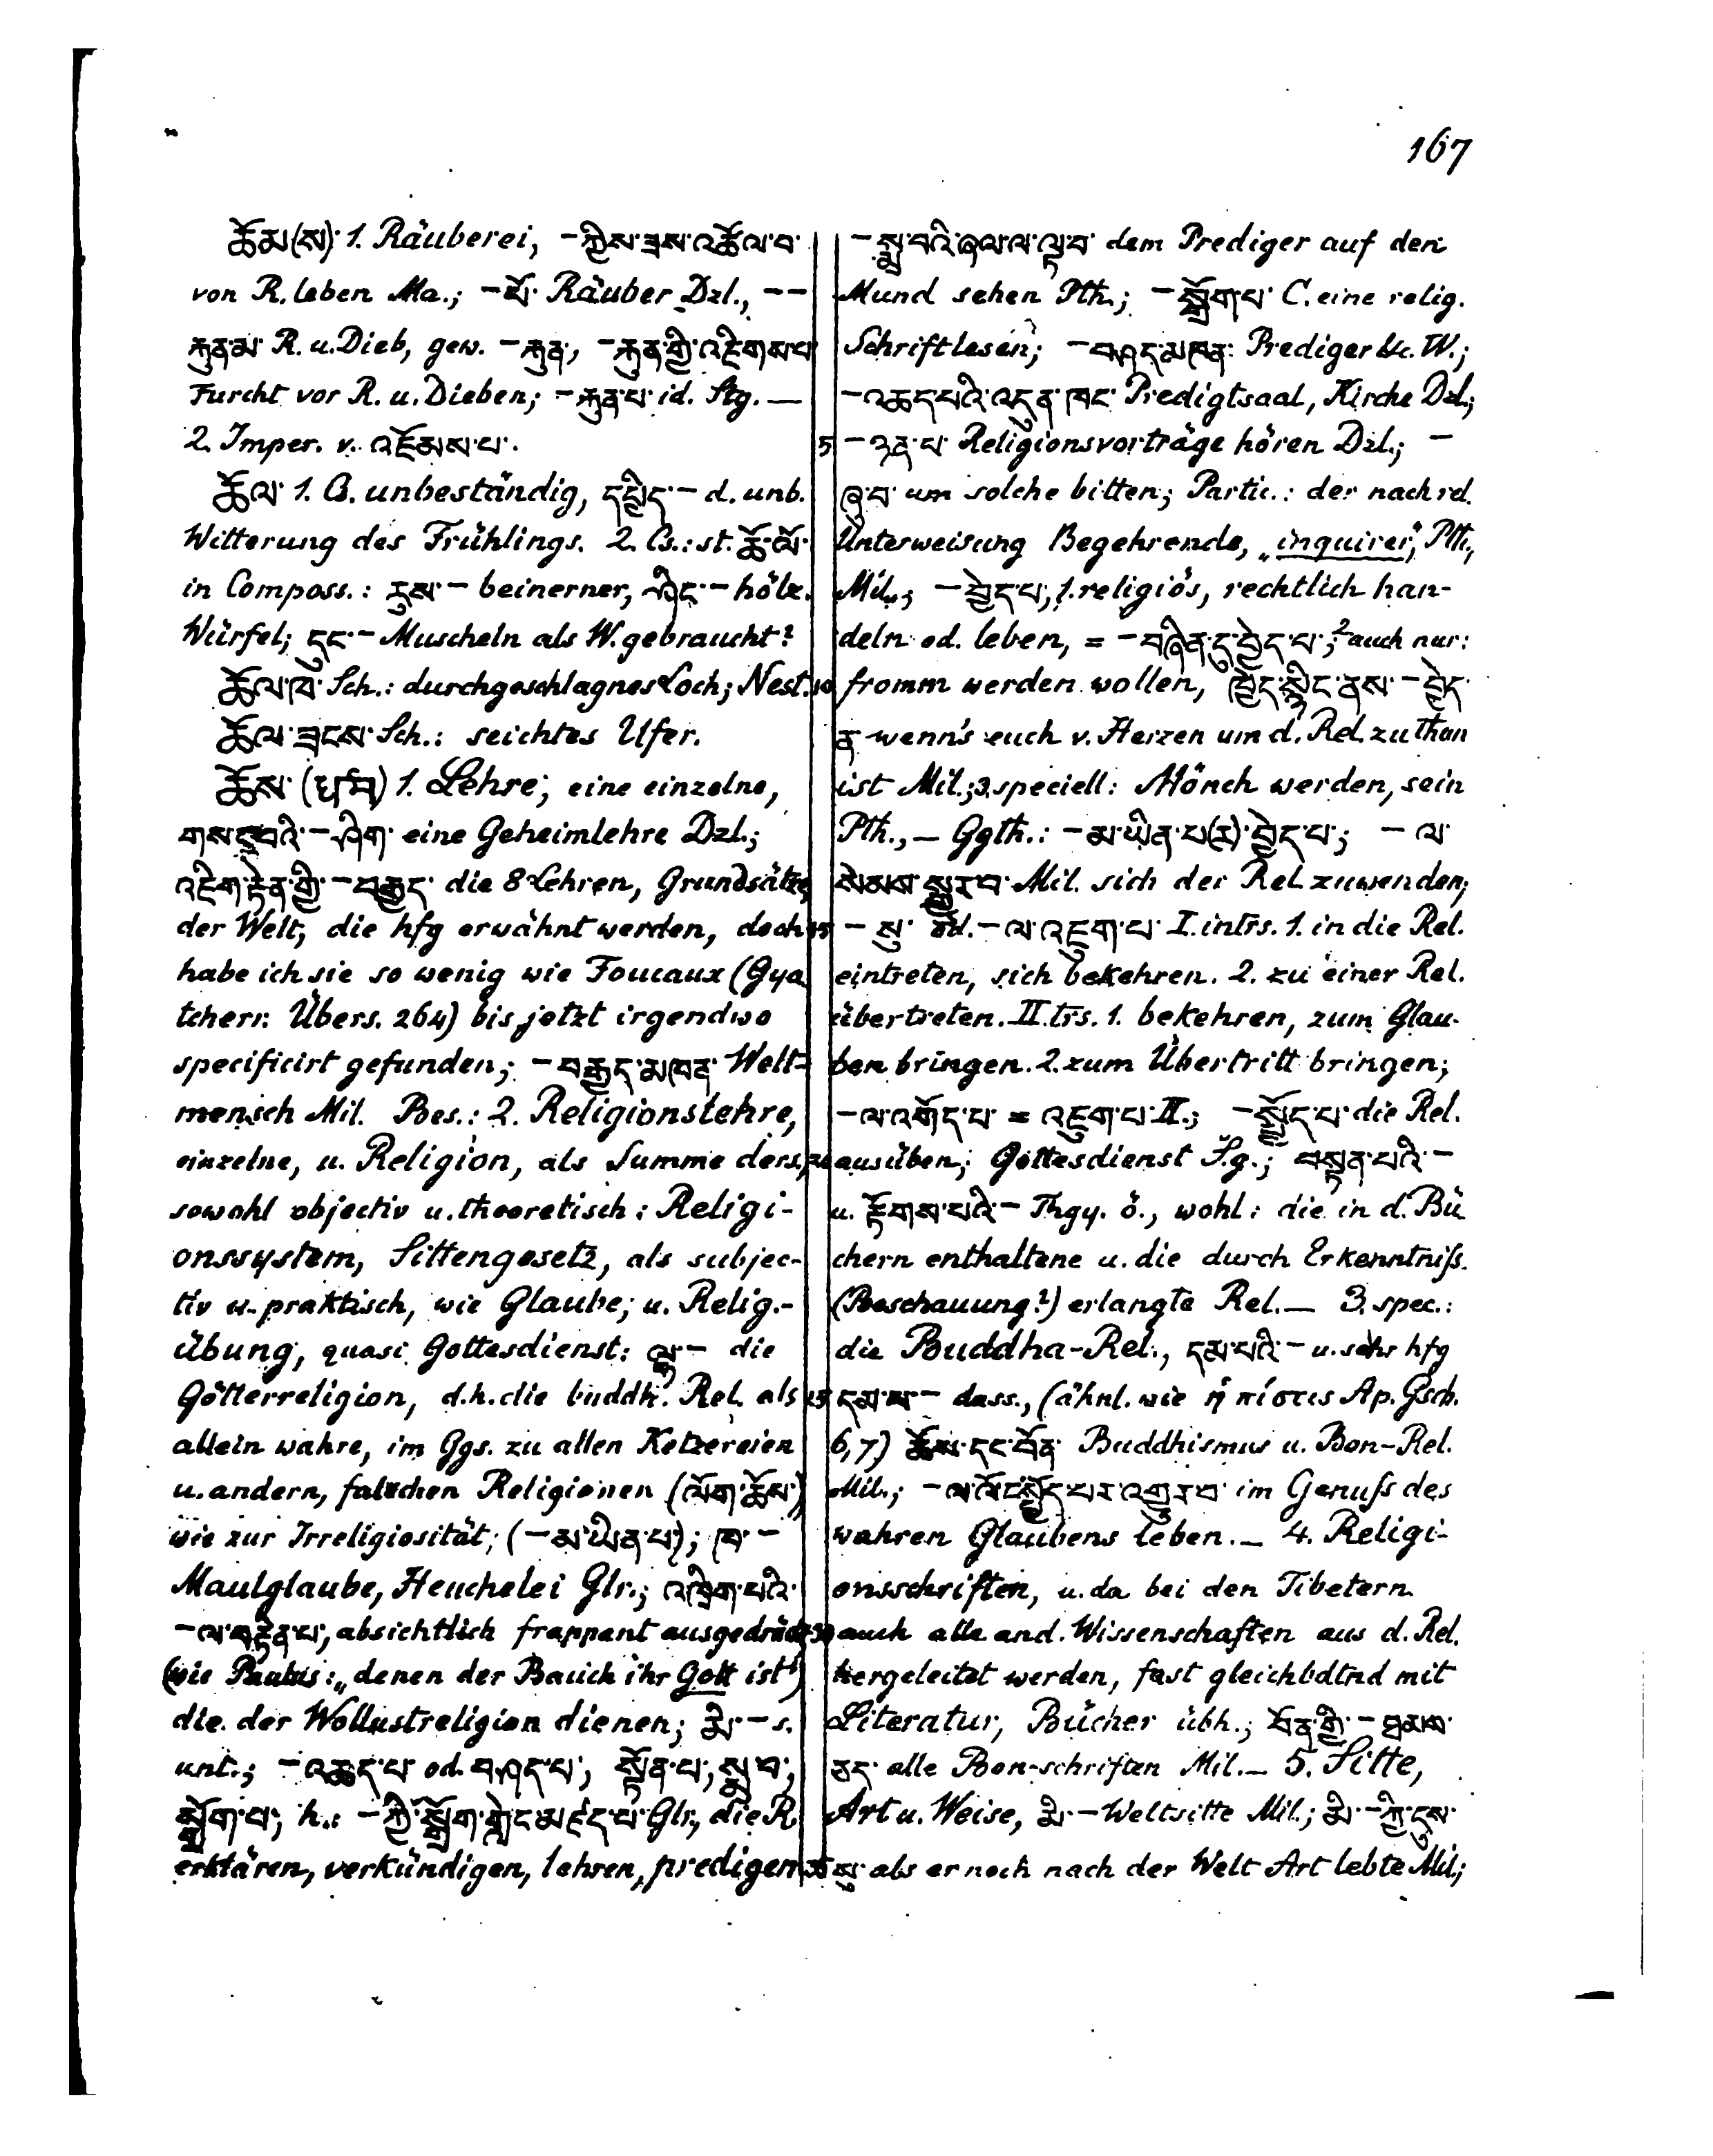 167
ཆོམ(ས)་ 1. Räuberei, –ཀྱིས་ཟས་འཚོལ་བ་
von R. leben Ma.; –པོ་ Räuber Dzl., ––
རྐུན་མ་ R. u. Dieb, gew. –རྐུན་, –རྐུན་གྱི་འཇིགས་པ་
Furcht vor R. u. Dieben; –རྐུན་པ་ id. Stg. —
2. Imper. v. འཇོམས་པ་.
ཆོལ་ 1. Cs. unbeständig, དཔྱིད་– d. unb.
Witterung des Frühlings. 2. Cs.: st. ཆོ་ལོ་
in Composs.: རུས་– beinerner, ཤིང་– hölz.
Würfel; དུང་– Muscheln als W. gebraucht?
ཆོལ་ཁ་ Sch.: durchgeschlagnes Loch; Nest.
ཆོལ་ཟངས་ Sch.: seichtes Ufer.
ཆོས་ (धर्म) 1. Lehre; eine einzelne,
གསང་བའི་–ཤིག་ eine Geheimlehre Dzl.;
འཇིག་རྟེན་གྱི་–བརྒྱད་ die 8 Lehren, Grundsätze,
der Welt, die hfg erwähnt werden, doch
habe ich sie so wenig wie Foucaux (Gya
tcherr. Übers. 264) bis jetzt irgendwo
specificirt gefunden; –བརྒྱད་མཁན་ Welt-
mensch Mil. Bes.: 2. Religionslehre,
einzelne, u. Religion, als Summe ders.,
sowohl objectiv u. theoretisch: Religi-
onssystem, Sittengesetz, als subjec-
tiv u. praktisch, wie Glaube; u. Relig.-
übung, quasi Gottesdienst: ལྷ་– die
Götterreligion, d.h. die buddh. Rel. als
allein wahre, im Ggs. zu allen Ketzereien
u. andern, falschen Religionen (ལོག་ཆོས་)
wie zur Irreligiosität; (–མ་ཡིན་པ་); ཁ་–
Maulglaube, Heuchelei Glr.; འཁྲིག་པའི་
–ལ་བརྟེན་པ་, absichtlich frappant ausgedrückt
(wie Paulus: „denen der Bauch ihr Gott ist“)
die der Wollustreligion dienen; མི་–s.
unt.; –འཆད་པ་ od. བཤད་པ་, སྟོན་པ་, སྨྲ་བ་,
སྒྲོག་པ་, h.: –ཀྱི་སྒྲོག་གླེང་མཛད་པ་ Glr., die R.
erklären, verkündigen, lehren, predigen
–སྨྲ་བའི་ཞལ་ལ་ལྟ་བ་ dem Prediger auf den
Mund sehen Pth.; –སྒྲོག་པ་ C. eine relig.
Schrift lesen; –བཤད་མཁན་ Prediger &c. W.;
–འཆད་པའི་འདུན་ཁང་ Predigtsaal, Kirche Dzl.;
5 –ཉན་པ་ Religionsvorträge hören Dzl.; –
ཞུ་བ་ um solche bitten; Partic.: der nach rel.
Unterweisung Begehrende, „inquirer“, Pth.,
Mil.; –བྱེད་པ་, 1. religiös, rechtlich han-
deln od. leben, = –བཞིན་དུ་བྱེད་པ་; 2 auch nur:
10 fromm werden wollen, ཁྱེད་སྙིང་ནས་–བྱེད་
ན་ wenn's euch v. Herzen um d. Rel. zu thun
ist Mil.; 3. speciell: Mönch werden, sein
Pth., — Ggth.: –མ་ཡིན་པ(ར)་བྱེད་པ་; –ལ་
སེམས་སྒྱུར་བ་ Mil. sich der Rel. zuwenden;
15 –སུ་ od. –ལ་འཇུག་པ་ I. intrs. 1. in die Rel.
eintreten, sich bekehren. 2. zu einer Rel.
übertreten. II. trs. 1. bekehren, zum Glau-
ben bringen. 2. zum Übertritt bringen;
–ལ་འགོད་པ་ = འཇུག་པ་ II.; –སྤྱོད་པ་ die Rel.
20 ausüben; Gottesdienst S.g.; བསྟན་པའི་–
u. རྟོགས་པའི་– Thgy. ö., wohl: die in d. Bü
chern enthaltene u. die durch Erkenntniß
(Beschauung?) erlangte Rel. — 3. spec.:
die Buddha-Rel., དམ་པའི་– u. sehr hfg
25 དམ་པ་– dass., (ähnl. wie ἡ πίστις Ap. Gsch.
6,7) ཆོས་དང་བོན་ Buddhismus u. Bon-Rel.
Mil.; –ལ་ལོངས་སྤྱོད་པར་འགྱུར་བ་ im Genuß des
wahren Glaubens leben. — 4. Religi-
onsschriften, u. da bei den Tibetern
30 auch alle and. Wissenschaften aus d. Rel.
hergeleitet werden, fast gleichbdtnd mit
Literatur, Bücher übh.; བོན་གྱི་–ཐམས་
ཅད་ alle Bon-schriften Mil. — 5. Sitte,
Art u. Weise, མི་– Weltsitte Mil.; མི་–ཀྱི་དུས་
35 སུ་ als er noch nach der Welt Art lebte Mil.;